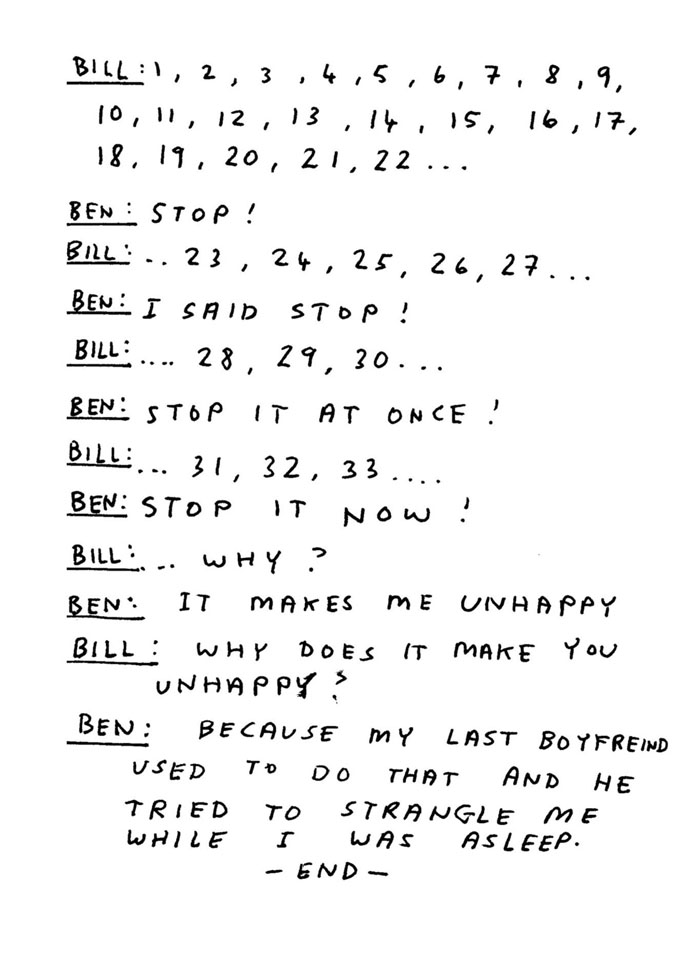 BILL: 1, 2, 3, 4, 5, 6, 7, 8, 9,
10, 11, 12, 13, 14, 15, 16, 17,
18, 19, 20, 21, 22...
BEN: STOP!
BILL: .. 23, 24, 25, 26, 27...
BEN: I SAID STOP!
BILL: .... 28, 29, 30...
BEN: STOP IT AT ONCE!
BILL: ... 31, 32, 33....
BEN: STOP IT NOW!
BILL: ... WHY?
BEN: IT MAKES ME UNHAPPY
BILL: WHY DOES IT MAKE YOU
UNHAPPY?
BEN: BECAUSE MY LAST BOYFREIND
USED TO DO THAT AND HE
TRIED TO STRANGLE ME
WHILE I WAS ASLEEP.
- END -